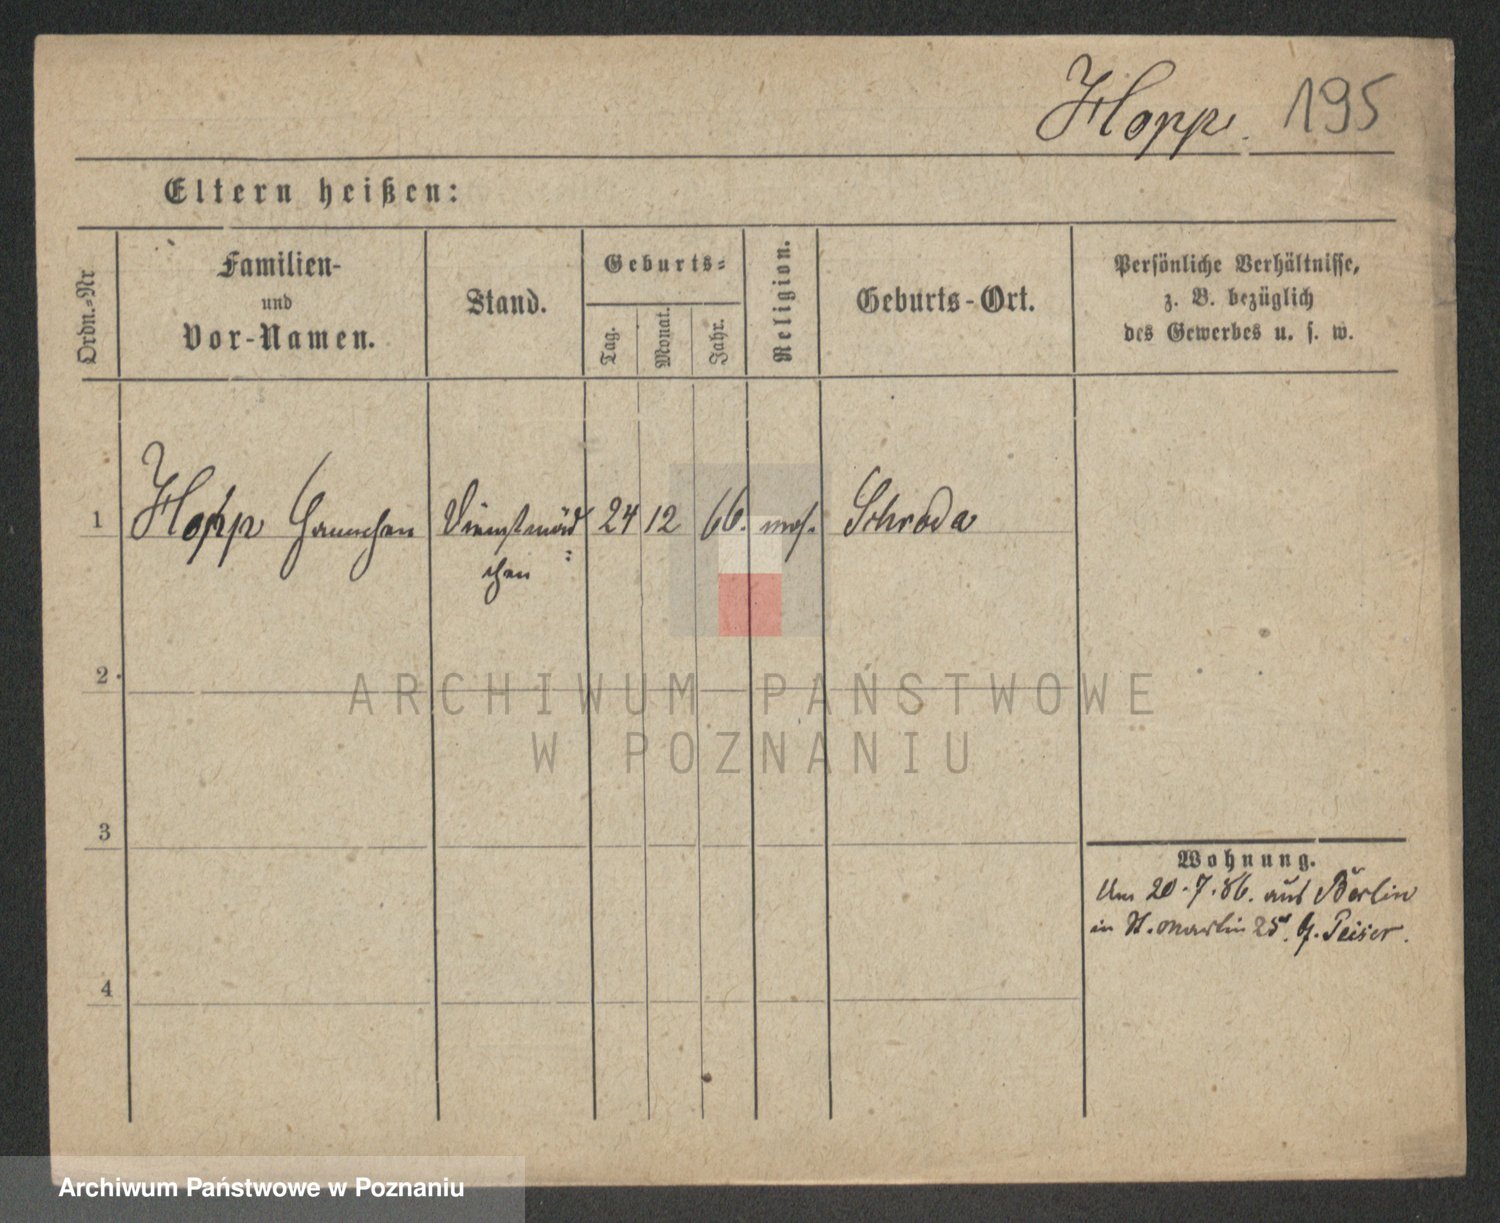 Hopp. 195
Eltern heißen:
Ordn.-Nr
Familien-
und
Vor-Namen.
Stand.
Geburts-
Tag.
Monat.
Jahr.
Religion.
Geburts-Ort.
Persönliche Verhältnisse,
z. B. bezüglich
des Gewerbes u. s. w.
1 Hopp Hannchen Dienstmäd= 24 12 66. mos. Schroda
chen
2
ARCHIWUM PAŃSTWOWE
W POZNANIU
3
Wohnung.
Am 20.7.86. aus Berlin
in St. Martin 25. Peiser.
4
Archiwum Państwowe w Poznaniu